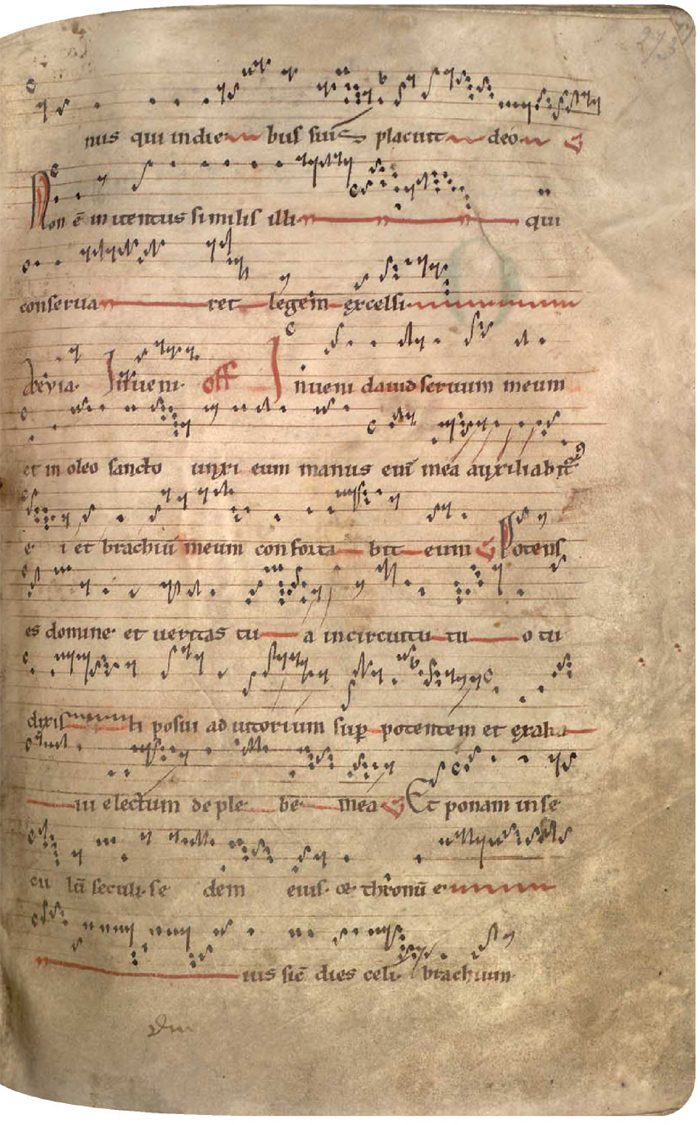 nus qui in die bus suis placuit deo
Non ē inuentus similis illi qui
conserua ret legem excelsi
Inueni off Inueni dauid seruum meum
et in oleo sancto unxi eum manus eni mea auxiliabit
e i et brachiū meum conforta bit eum Potens
es domine et ueritas tu a in circuitu tu o tu
dixis ti posui adiutorium sup potentem et exal
ui electum de ple be mea Et ponam in se
cu lū seculi se dem eius et thronū e
ius sic dies celi brachium